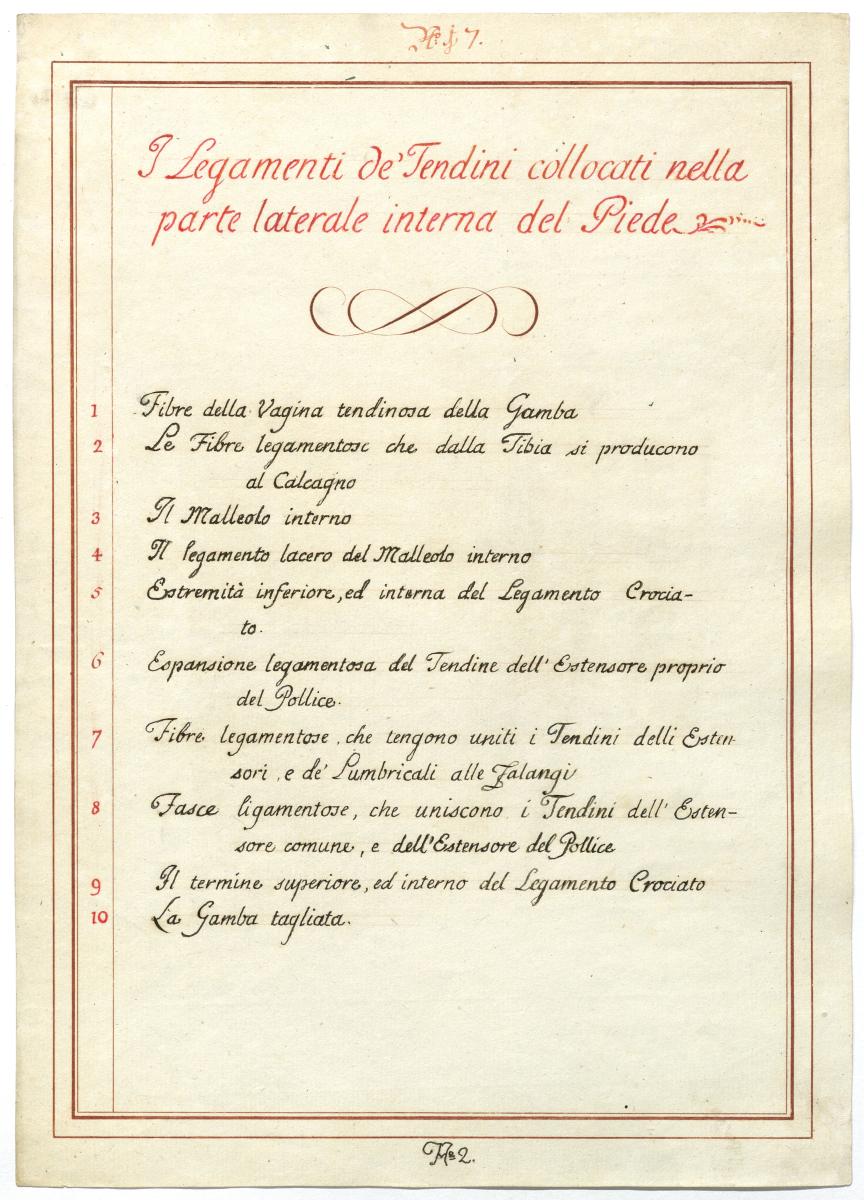 7.
I Legamenti de' Tendini collocati nella
parte laterale interna del Piede
1 Fibre della Vagina tendinosa della Gamba
2 Le Fibre legamentose che dalla Tibia si producono
al Calcagno
3 Il Malleolo interno
4 Il legamento lacero del Malleolo interno
5 Estremità inferiore, ed interna del Legamento Crocia-
to.
6 Espansione legamentosa del Tendine dell' Estensore proprio
del Pollice.
7 Fibre legamentose, che tengono uniti i Tendini delli Esten-
sori, e de' Lumbricali alle Falangi
8 Fasce ligamentose, che uniscono i Tendini dell' Esten-
sore comune, e dell'Estensore del Pollice
9 Il termine superiore, ed interno del Legamento Crociato
10 La Gamba tagliata.
2.